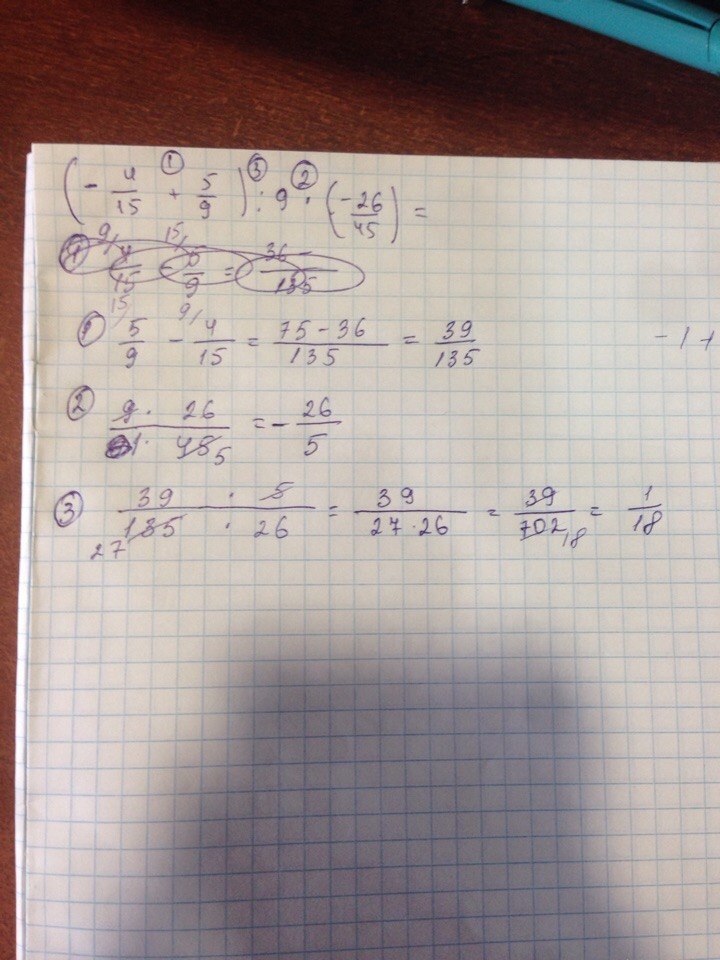 (- 4/15 + ① 5/9) ③ : 9 ② · (-26/45) =
① 9/ 4/15 - 15/ 5/9 = 36 - / 135
① 15/ 5/9 - 9/ 4/15 = 75 - 36 / 135 = 39/135 - 1 +
② 9 · 26 / 1 · 45 5 = - 26/5
③ 39 · 5 / 135 27 · 26 = 39 / 27 · 26 = 39 / 702 18 = 1/18